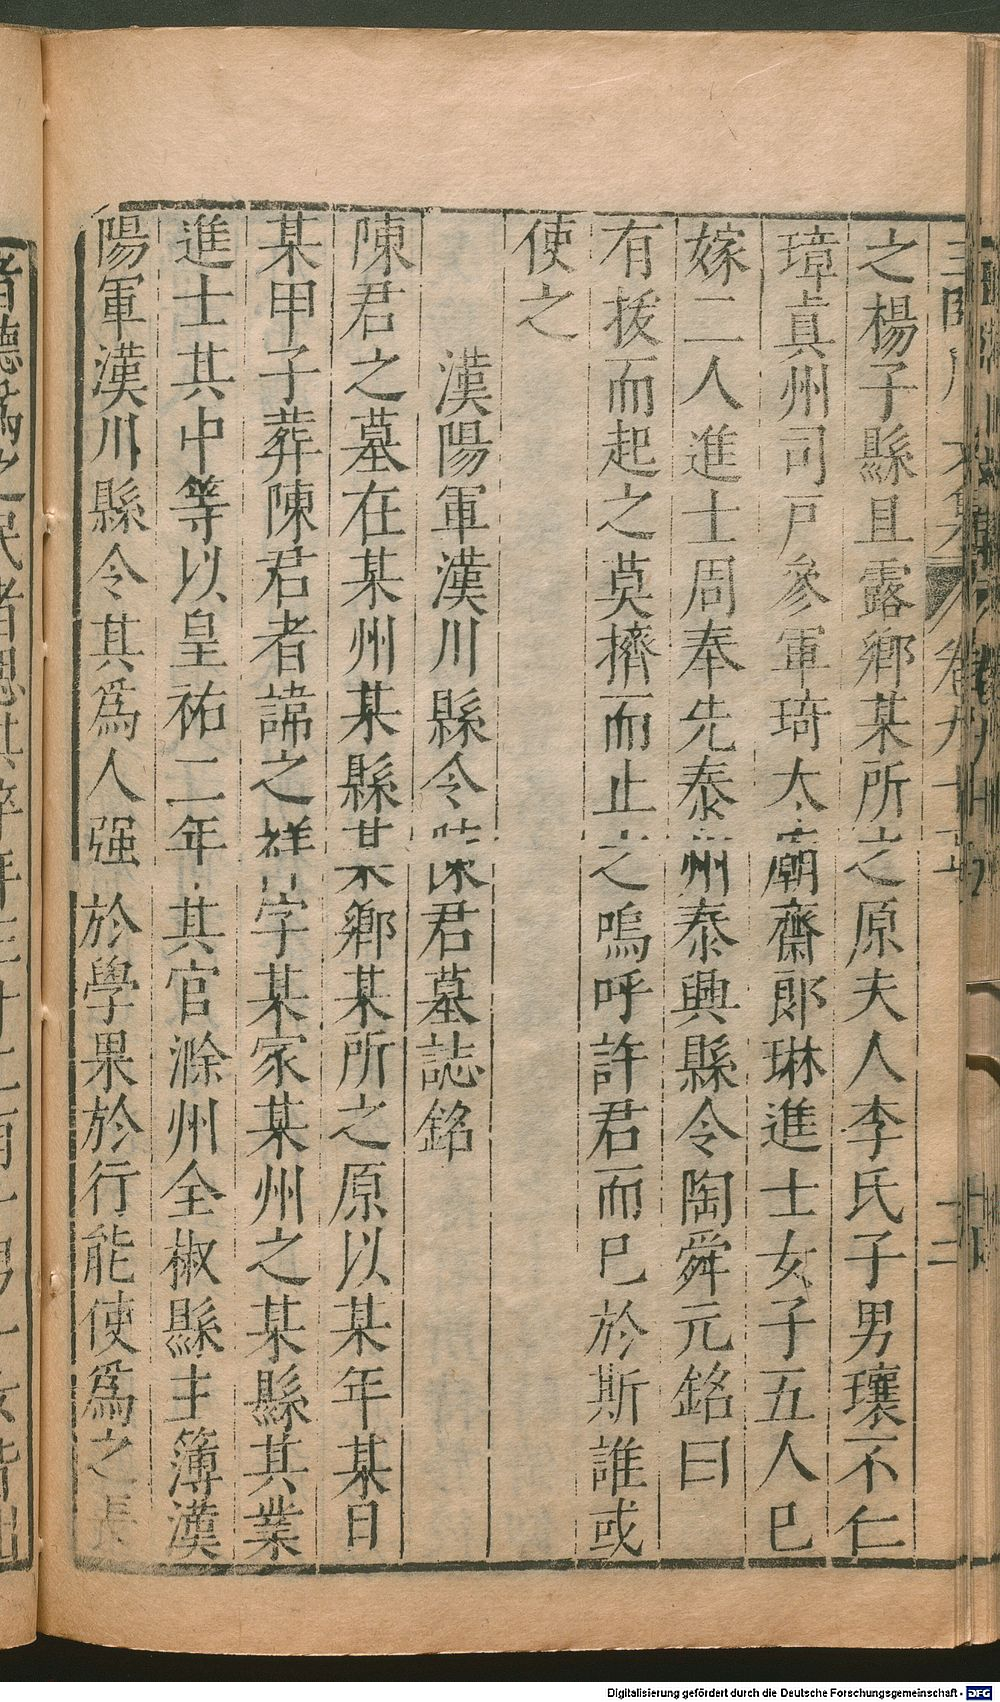 之楊子縣且露鄉某所之原夫人李氏子男瓌不仁
璋眞州司戸參軍琦太廟齋郎琳進士女子五人已
嫁二人進士周奉先泰州泰興縣令陶舜元銘曰
有拔而起之莫擠而止之嗚呼許君而已於斯誰或
使之
漢陽軍漢川縣令陳君墓誌銘
陳君之墓在某州某縣某鄉某所之原以某年某日
某甲子葬陳君者諱之祥字某家某州之某縣其業
進士其中等以皇祐二年其官滁州全椒縣主簿漢
陽軍漢川縣令其爲人强於學果於行能使爲之長
者德爲之民者思其卒年三十
Digitalisierung gefördert durch die Deutsche Forschungsgemeinschaft - DFG